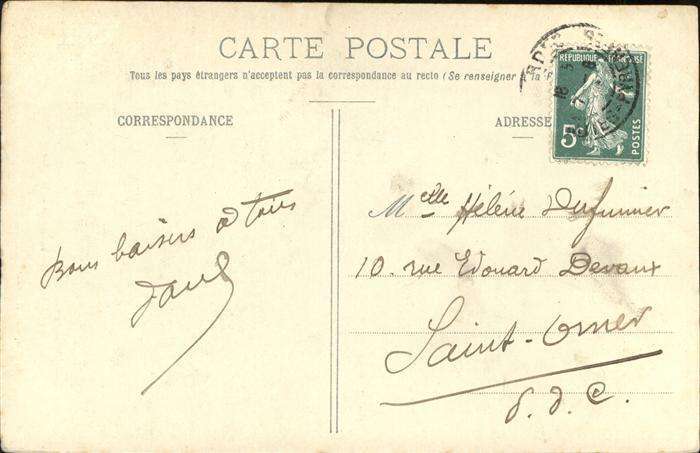 CARTE POSTALE
Tous les pays étrangers n'acceptent pas la correspondance au recto (Se renseigner à la P
CORRESPONDANCE
ADRESSE
REPUBLIQUE FRANÇAISE
5
POSTES
Bons baisers à tous
Melle Hélène
10. rue Edouard Devaux
Saint-Omer
P. d. C.